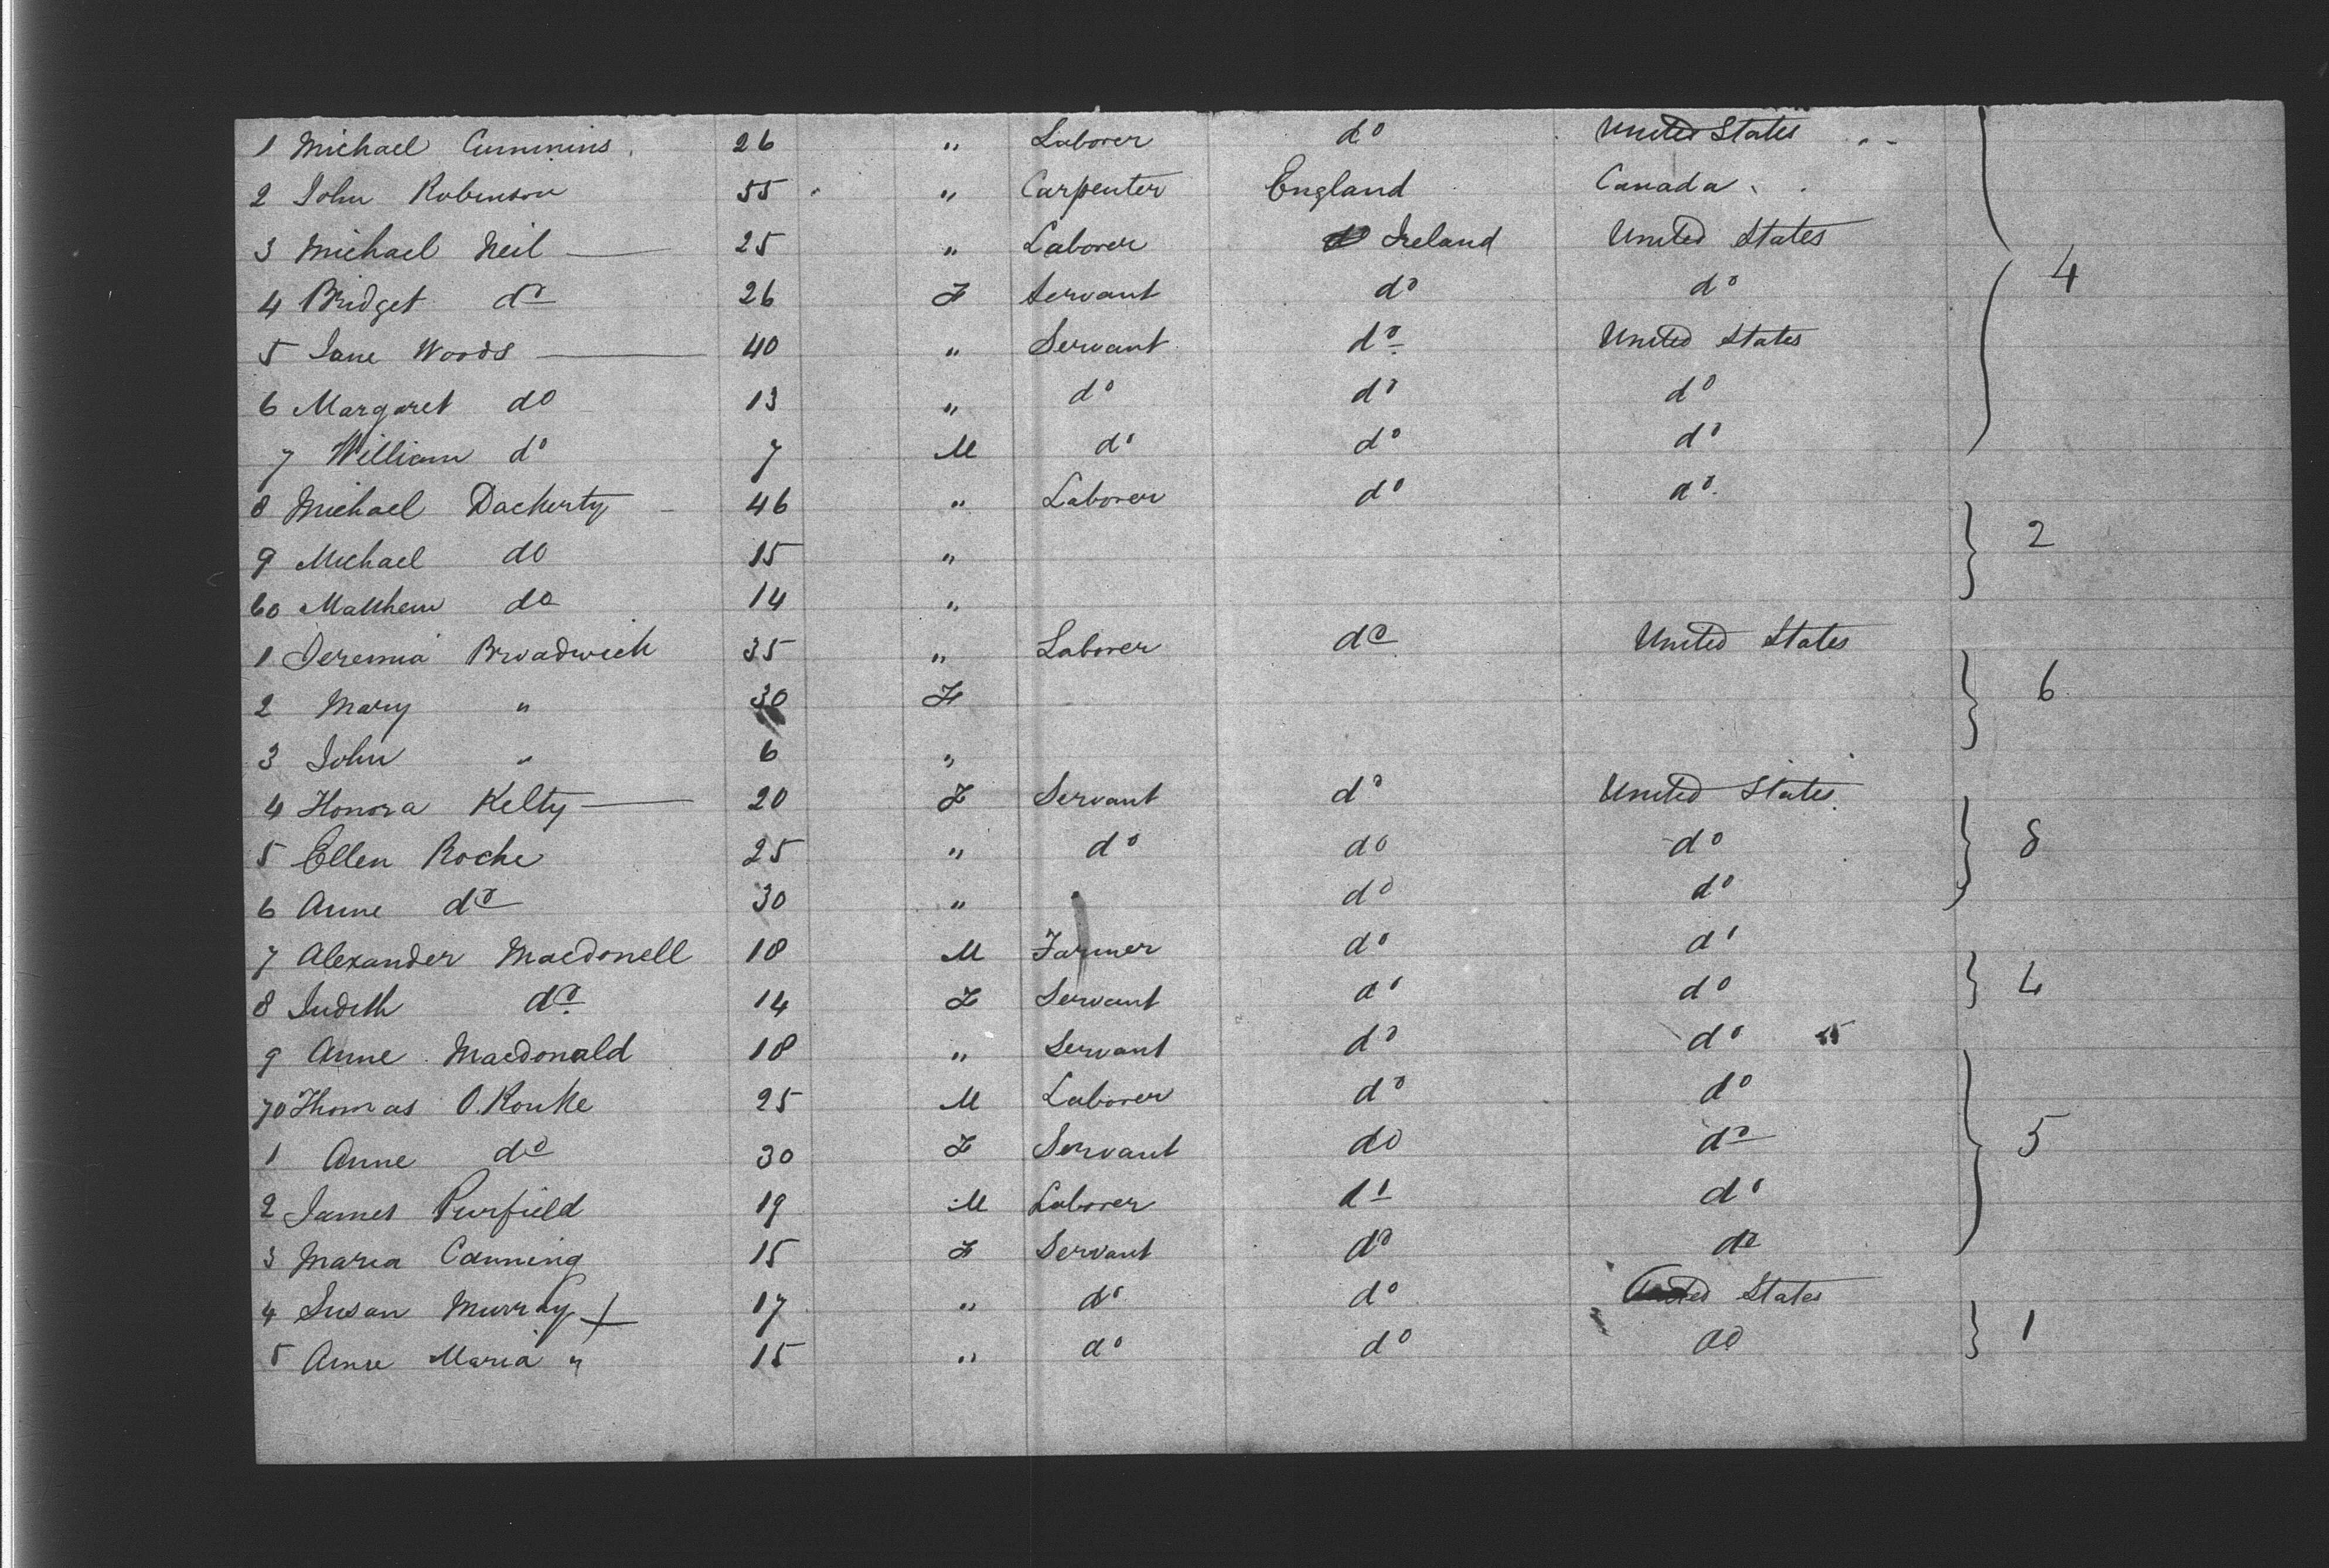 1 Michael Cummins 26 " Laborer do United States
2 John Robinson 55 " Carpenter England Canada
3 Michael Neil — 25 " Laborer Ireland United States
4 Bridget do 26 F Servant do do 4
5 Jane Woods — 40 " Servant do United States
6 Margaret do 13 " do do do
7 William do 7 M do do do
8 Michael Dackerty - 46 " Laborer do do
9 Michael do 15 " 2
60 Matthew do 14 "
1 Jeremia Broadwick 35 " Laborer do United States
2 Mary " 30 F 6
3 John " 6 "
4 Honora Kelty — 20 F Servant do United States
5 Ellen Roche 25 " do do do 8
6 Anne do 30 " do do
7 Alexander Macdonell 18 M Farmer do do
8 Judith do 14 F Servant do do 4
9 Anne Macdonald 18 " Servant do do
70 Thomas O. Rouke 25 M Laborer do do
1 Anne do 30 F Servant do do 5
2 James Purfield 19 M Laborer do do
3 Maria Canning 15 F Servant do do
4 Susan Murray + 17 " do do United States
5 Anne Maria " 15 " do do do 1